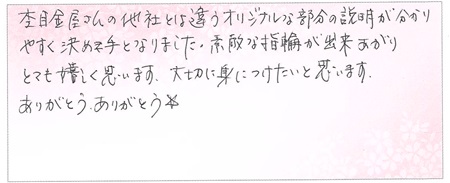 杢目金屋さんの他社とは違うオリジナルな部分の説明が分かり
やすく決め手となりました。素敵な指輪が出来あがり
とても嬉しく思います。大切に身につけたいと思います。
ありがとう.ありがとう☆